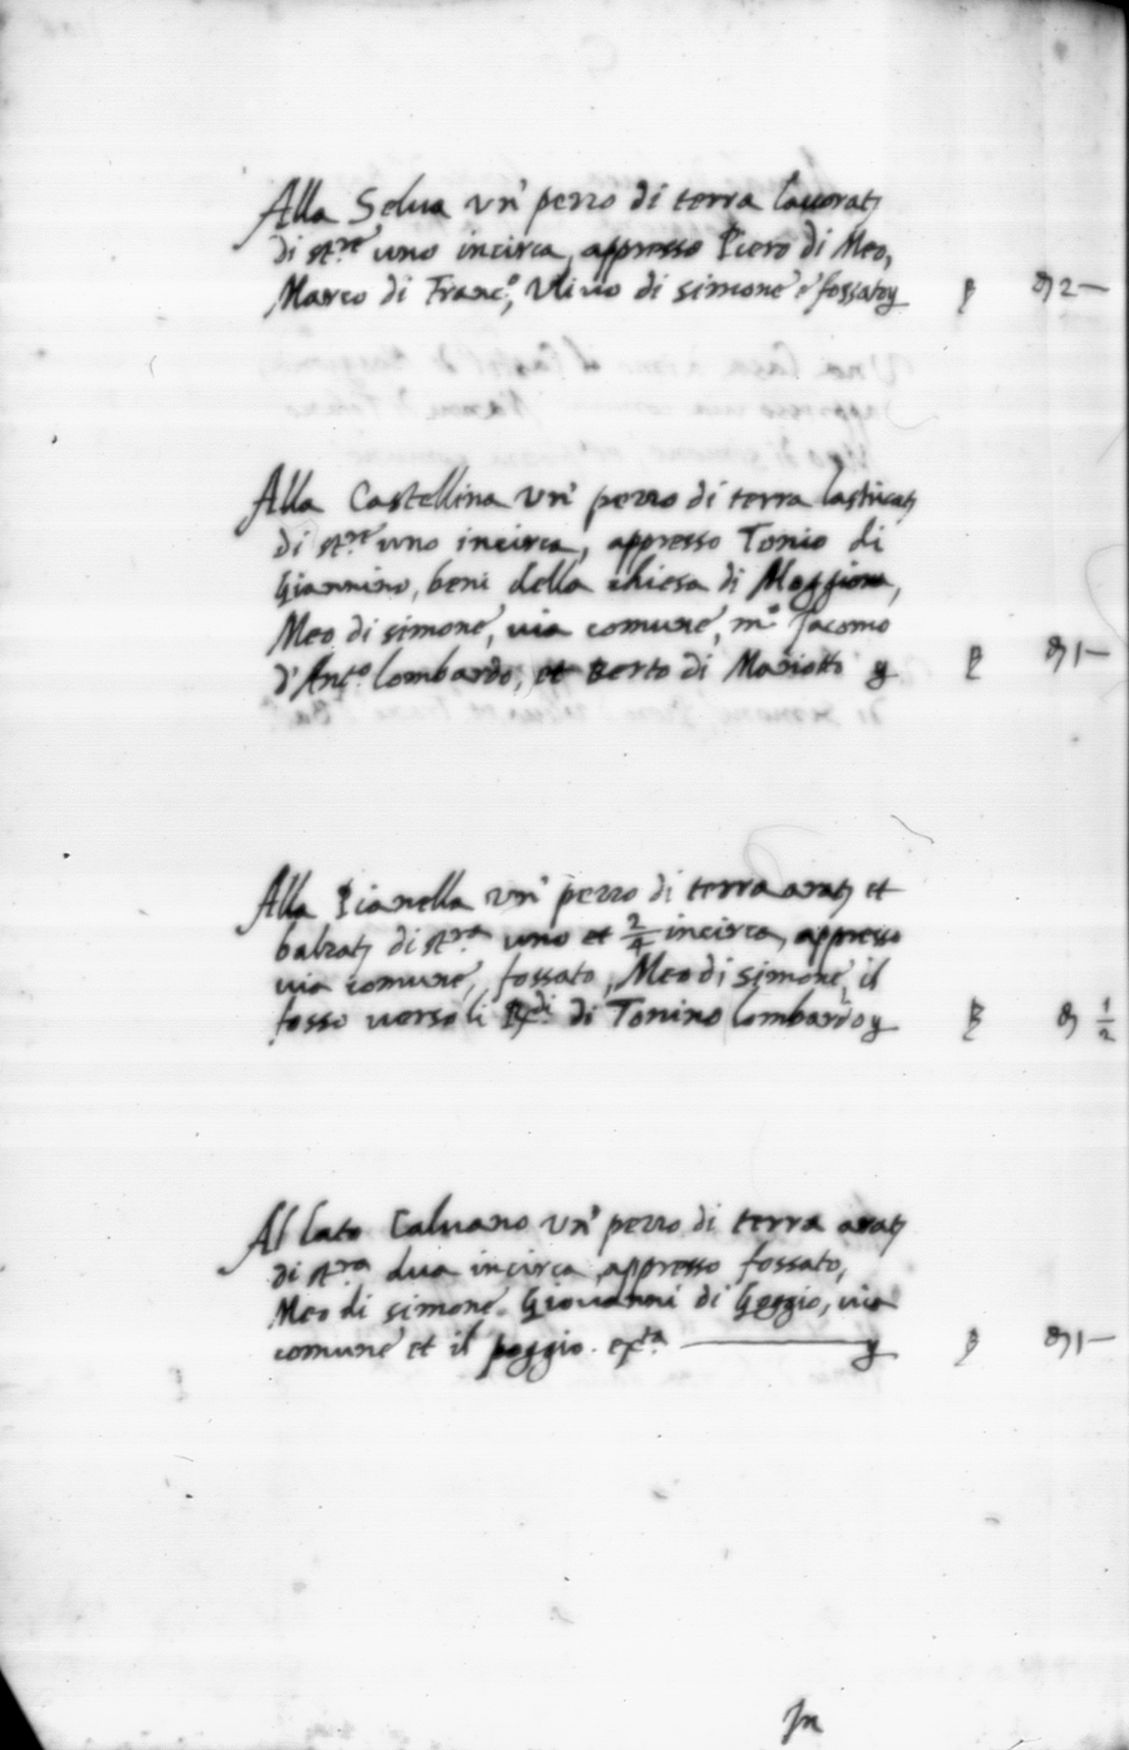 Alla Selua un' pezzo di terra lauorat
di st.re uno incirca, appresso Piero di Meo,
Marco di Franc.o, Vivo di simone e' fossato 2 —
Alla Castellina un' pezzo di terra lastricat
di st.re uno incirca, appresso Tonio di
Giannino, beni della chiesa di Moggiona,
Meo di simone, uia comune, m.o Jacomo
d'Ant.o lombardo, et Berto di Mariotto 1 —
Alla Pianella un' pezzo di terra arat et
balzat di st.ra uno et 2/4 incirca, appresso
uia comune, fossato, Meo di simone, il
fosso uerso li di Tonino lombardo 1/2
Al lato Caluano un' pezzo di terra arat
di st.ra dua incirca appresso fossato,
Meo di simone. Giouanni di Goggio, uia
comune et il poggio. 1 —
In